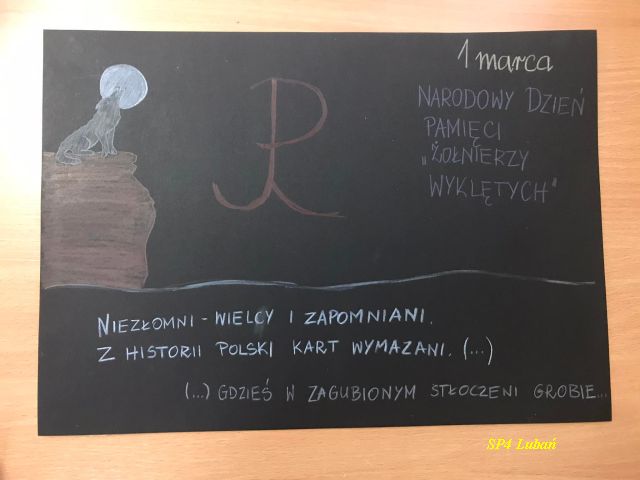 1 marca
NARODOWY DZIEŃ
PAMIĘCI
„ŻOŁNIERZY
WYKLĘTYCH"
NIEZŁOMNI - WIELCY I ZAPOMNIANI.
Z HISTORII POLSKI KART WYMAZANI. (...)
(...) GDZIEŚ W ZAGUBIONYM STŁOCZENI GROBIE...
SP4 Lubań